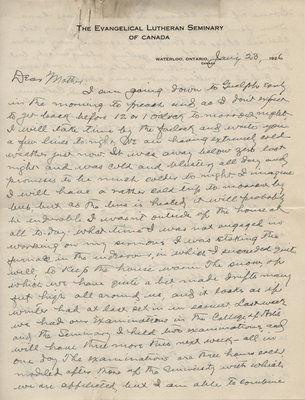 THE EVANGELICAL LUTHERAN SEMINARY
OF CANADA
WATERLOO, ONTARIO, Jan'y 23, 1926
Dear Mother
I am going down to Guelph early
in the morning to preach and as I don't expect
to get back before 12 or 1 o'clock to-morrow night
I will take time by the forelock and write you
a few lines to-night. We are having extremely cold
weather just now. It was away below zero last
night and was cold and blustery all day and
promises to be much colder to-night. I imagine
I will have a rather cold trip to-morrow by
bus but as the bus is heated it will probably
be endurable. I wasn't outside of the house at
all to-day. What time I was not engaged in
working on my sermons I was stoking the
furnace in the endeavour, in which I succeeded quite
well, to keep the house warm. The snow, of
which we have quite a bit, made drifts many
feet high all around us, and it looks as if
winter had at last set in in earnest. Last week
we had our examinations in the College & Sem.
and the Seminary. I held two examinations, and
will have three more this next week - all in
one day. The examinations are three hours each,
modelled after those of the University with which
we are affiliated, but I am able to combine